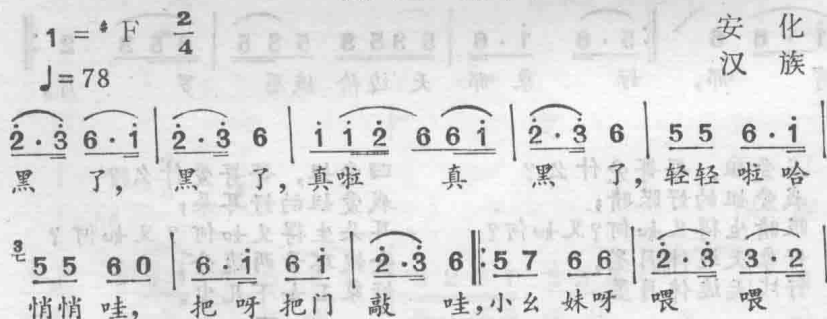 1 = ♯F 2/4 安化
♩= 78 汉族
2̇·3̇ 6·i̇ | 2̇·3̇ 6 | i̇ i̇ 2̇ 6 6 i̇ | 2̇·3̇ 6 | 5 5 6·i̇ |
黑 了, 黑 了, 真啦 真 黑 了, 轻轻 啦哈
5 5 6 0 | 6·i̇ 6 i̇ | 2̇·3̇ 6 ‖: 5 7 6 6 | 2̇·3̇ 3·2 |
悄悄 哇, 把呀把门 敲 哇,小幺 妹呀 喂 喂